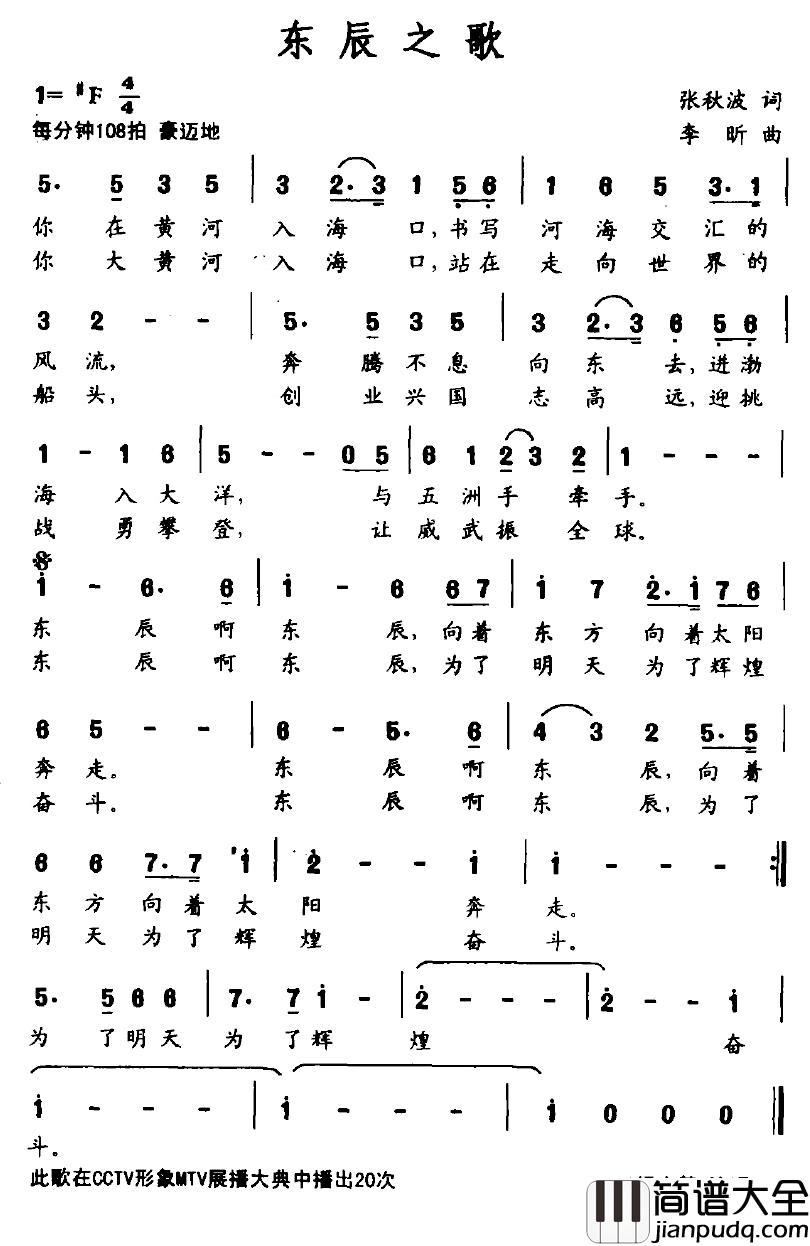 东辰之歌
1=♯F 4/4
张秋波 词
每分钟108拍 豪迈地
李昕曲
5· 5 3 5 | 3 2·3 1 5 6 | 1 6 5 3·1 |
你在黄河入海口,书写河海交汇的
你大黄河入海口,站在走向世界的
3 2 - - | 5· 5 3 5 | 3 2·3 6 5 6 |
风流, 奔腾不息向东去,进渤
船头, 创业兴国志高远,迎挑
1 - 1 6 | 5 - - 0 5 | 6 1 2 3 2 | 1 - - - |
海入大洋, 与五洲手牵手。
战勇攀登, 让威武振全球。
i - 6· 6 | i - 6 6 7 | i 7 2·i 7 6 |
东辰啊东辰,向着东方向着太阳
东辰啊东辰,为了明天为了辉煌
6 5 - - | 6 - 5· 6 | 4 3 2 5·5 |
奔走。 东辰啊东辰,向着
奋斗。 东辰啊东辰,为了
6 6 7·7 i | 2 - - i | i - - :|
东方向着太阳奔走。
明天为了辉煌奋斗。
5· 5 6 6 | 7· 7 i - | 2 - - - | 2 - - i |
为了明天为了辉煌奋
i - - - | i - - - | i 0 0 0 |
斗。
此歌在CCTV形象MTV展播大典中播出20次
简谱大全
jianpudq.com